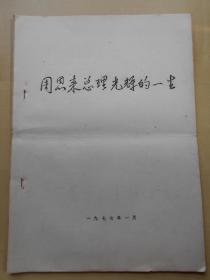 周恩来总理光辉的一生
一九七七年一月